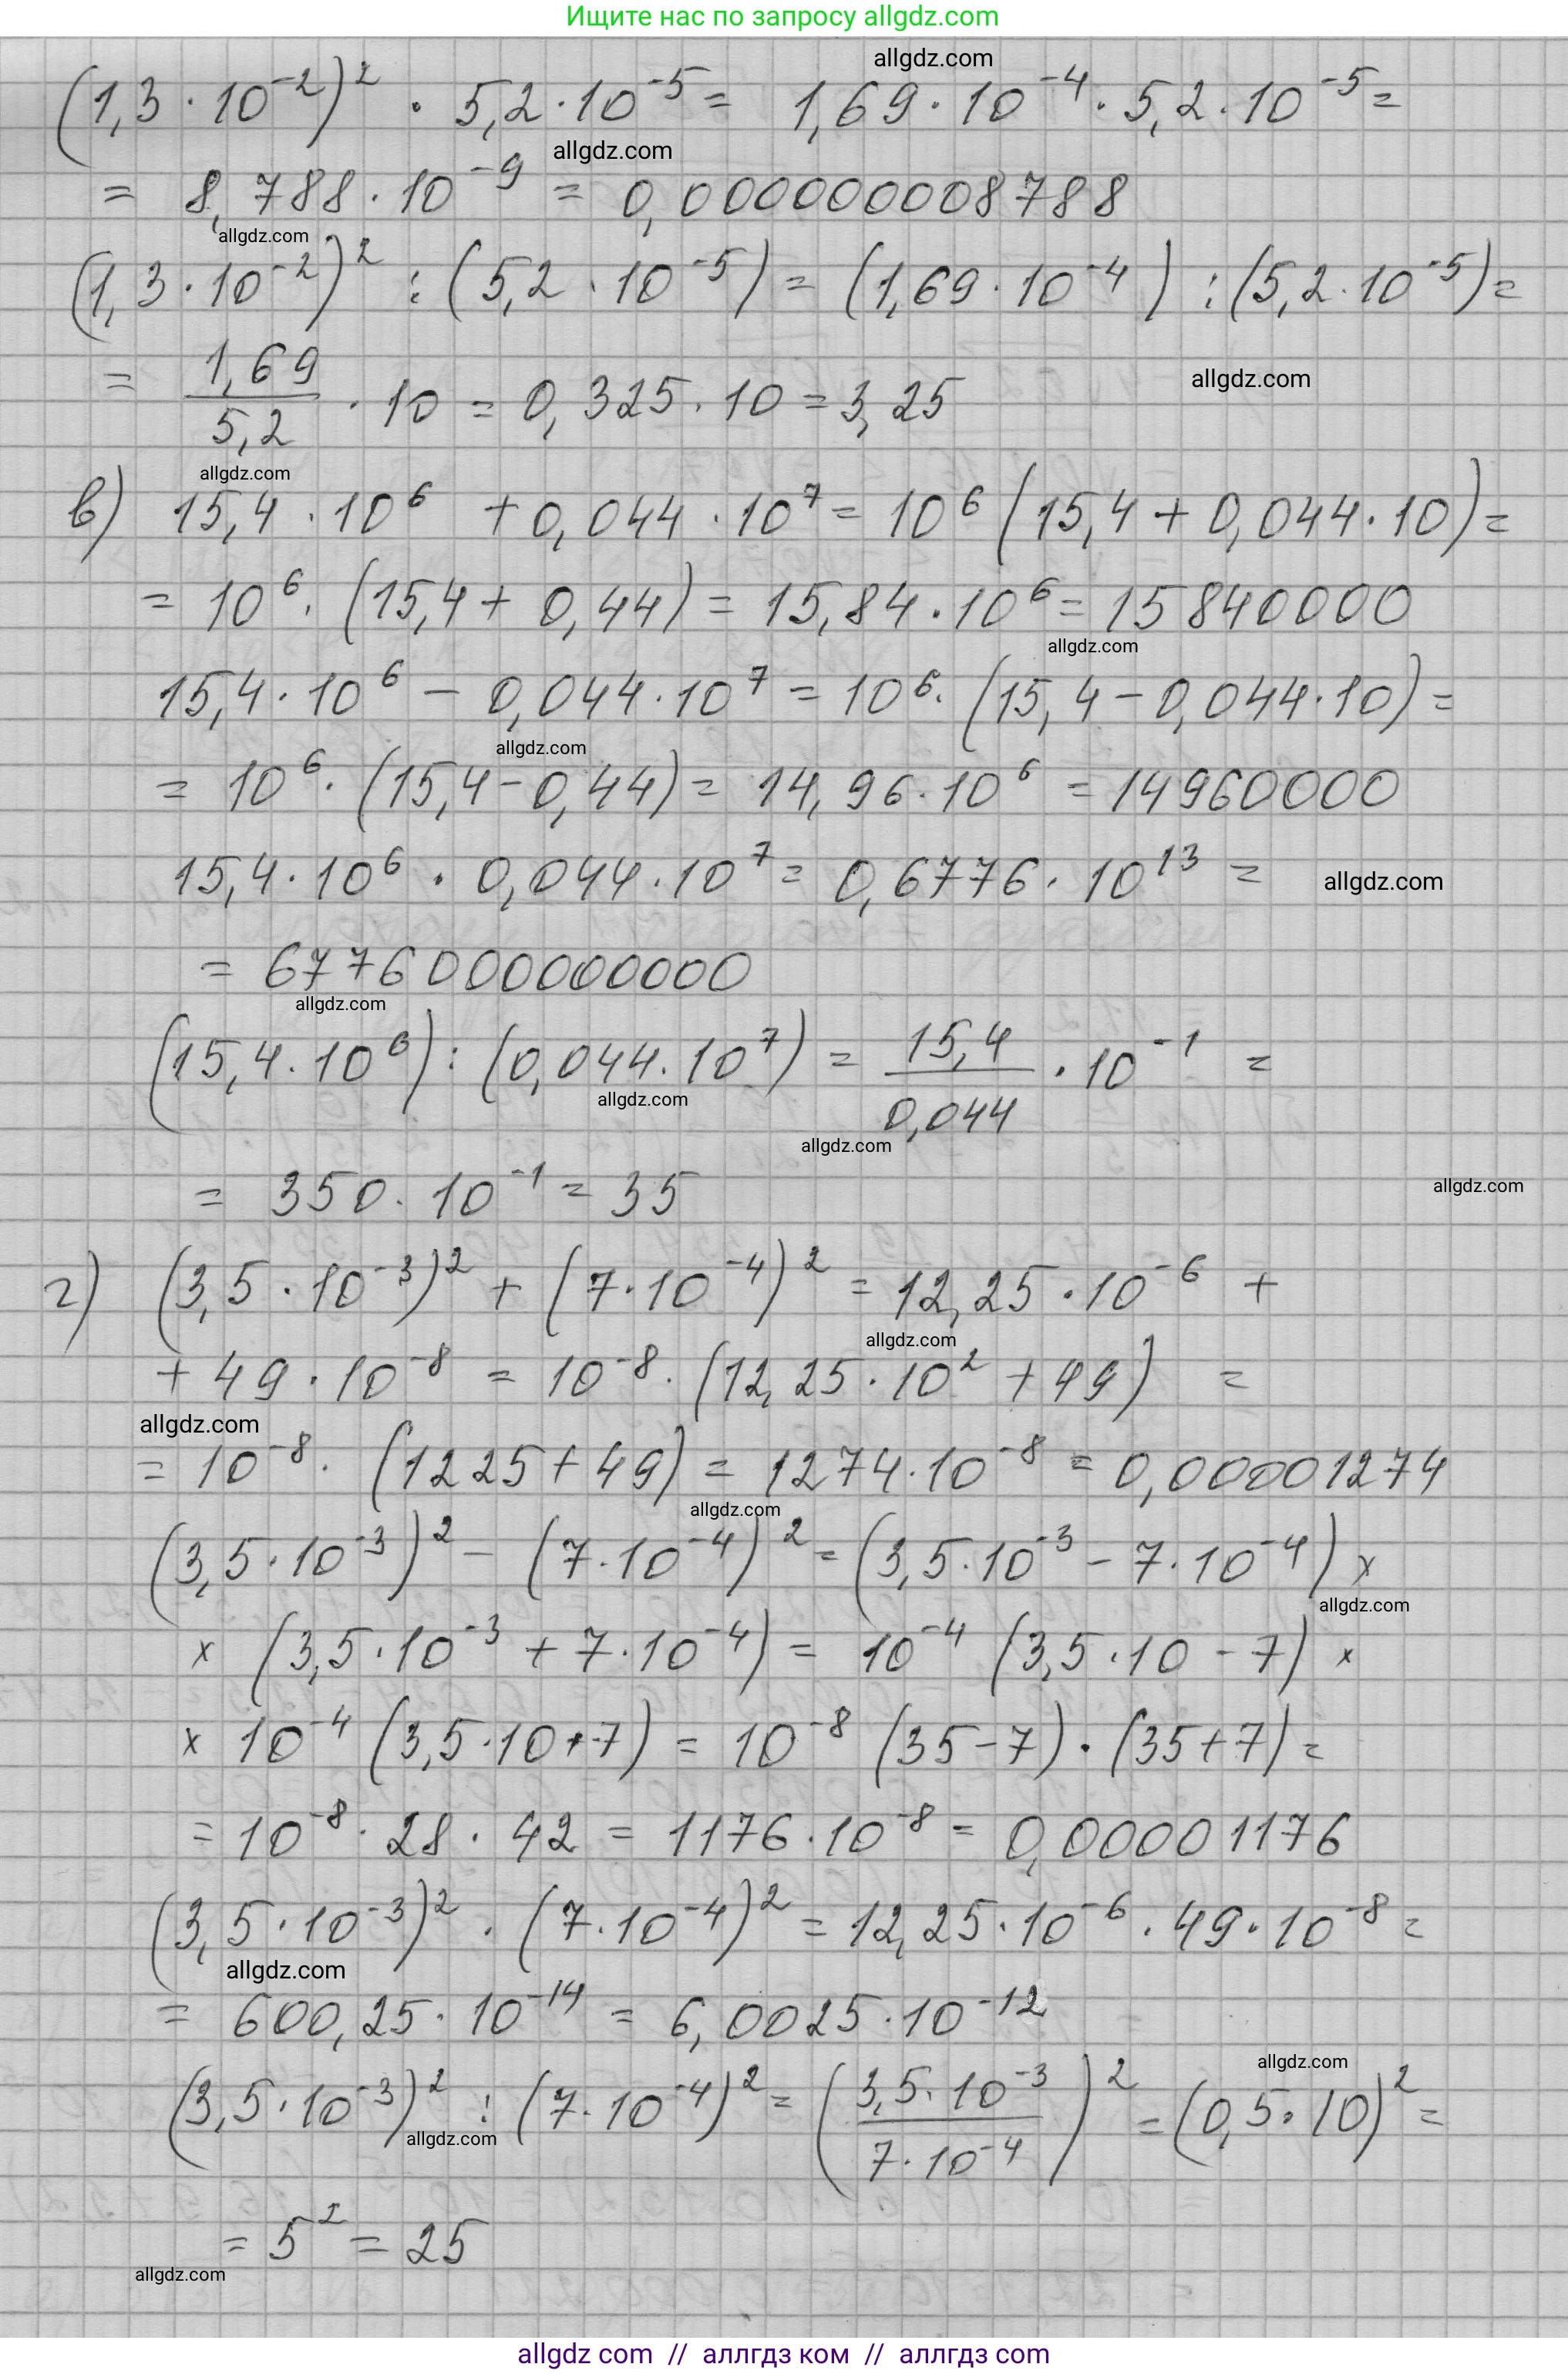 Ищите нас по запросу allgdz.com
allgdz.com
(1,3 · 10⁻²)² · 5,2 · 10⁻⁵ = 1,69 · 10⁻⁴ · 5,2 · 10⁻⁵ =
allgdz.com
= 8,788 · 10⁻⁹ = 0,000000008788
allgdz.com
(1,3 · 10⁻²)² : (5,2 · 10⁻⁵) = (1,69 · 10⁻⁴) : (5,2 · 10⁻⁵) =
= 1,69/5,2 · 10 = 0,325 · 10 = 3,25
allgdz.com
allgdz.com
в) 15,4 · 10⁶ + 0,044 · 10⁷ = 10⁶ (15,4 + 0,044 · 10) =
= 10⁶ · (15,4 + 0,44) = 15,84 · 10⁶ = 15840000
allgdz.com
15,4 · 10⁶ − 0,044 · 10⁷ = 10⁶ · (15,4 − 0,044 · 10) =
allgdz.com
= 10⁶ · (15,4 − 0,44) = 14,96 · 10⁶ = 14960000
15,4 · 10⁶ · 0,044 · 10⁷ = 0,6776 · 10¹³ =
allgdz.com
= 6776000000000
allgdz.com
(15,4 · 10⁶) : (0,044 · 10⁷) = 15,4/0,044 · 10⁻¹ =
allgdz.com
allgdz.com
= 350 · 10⁻¹ = 35
allgdz.com
г) (3,5 · 10⁻³)² + (7 · 10⁻⁴)² = 12,25 · 10⁻⁶ +
allgdz.com
+ 49 · 10⁻⁸ = 10⁻⁸ · (12,25 · 10² + 49) =
allgdz.com
= 10⁻⁸ · (1225 + 49) = 1274 · 10⁻⁸ = 0,00001274
allgdz.com
(3,5 · 10⁻³)² − (7 · 10⁻⁴)² = (3,5 · 10⁻³ − 7 · 10⁻⁴) ×
allgdz.com
× (3,5 · 10⁻³ + 7 · 10⁻⁴) = 10⁻⁴ (3,5 · 10 − 7) ×
× 10⁻⁴ (3,5 · 10 + 7) = 10⁻⁸ (35 − 7) · (35 + 7) =
= 10⁻⁸ · 28 · 42 = 1176 · 10⁻⁸ = 0,00001176
(3,5 · 10⁻³)² · (7 · 10⁻⁴)² = 12,25 · 10⁻⁶ · 49 · 10⁻⁸ =
allgdz.com
= 600,25 · 10⁻¹⁴ = 6,0025 · 10⁻¹²
allgdz.com
(3,5 · 10⁻³)² : (7 · 10⁻⁴)² = (3,5 · 10⁻³/7 · 10⁻⁴)² = (0,5 · 10)² =
allgdz.com
= 5² = 25
allgdz.com
allgdz com // аллгдз ком // аллгдз com